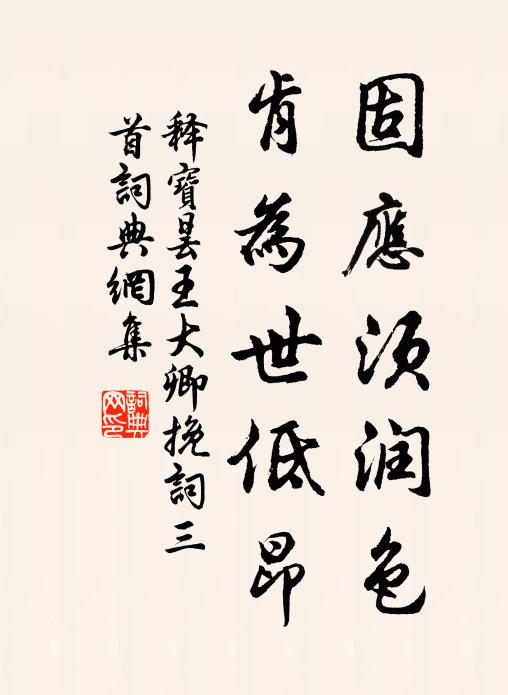 固應須润色
肯為世低昂
释寶曇王大卿挽詞三
首詞典網集
詞典
网印